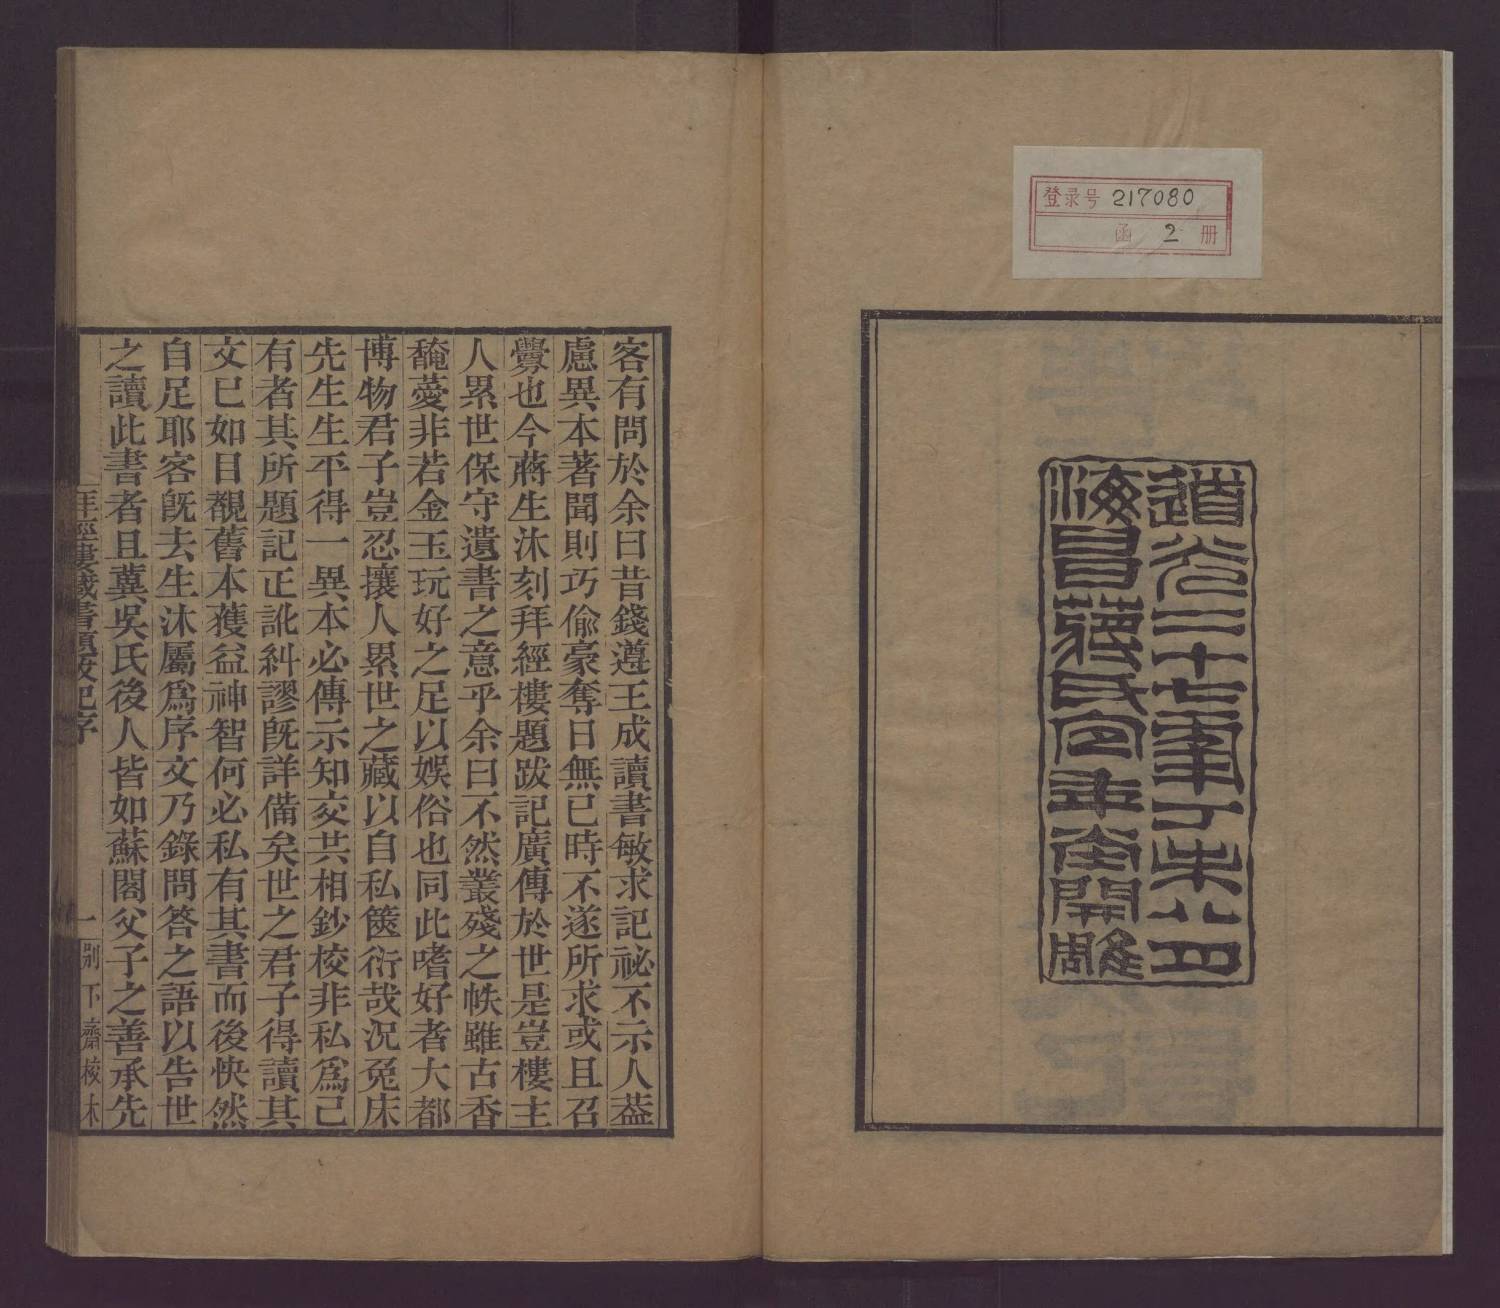 登录号 217080
函 2 册
道光二十七年丁未八月
海昌蔣氏宜年堂開雕
客有問於余曰昔錢遵王成讀書敏求記祕不示人葢
慮異本著聞則巧偷豪奪日無已時不遂所求或且召
釁也今蔣生沐刻拜經樓題跋記廣傳於世是豈樓主
人累世保守遺書之意乎余曰不然叢殘之帙雖古香
馣薆非若金玉玩好之足以娛俗也同此嗜好者大都
博物君子豈忍攘人累世之藏以自私篋衍哉況兔床
先生生平得一異本必傳示知交共相鈔校非私爲己
有者其所題記正訛糾謬旣詳備矣世之君子得讀其
文已如目覩舊本獲益神智何必私有其書而後快然
自足耶客旣去生沐屬爲序文乃錄問答之語以告世
之讀此書者且冀吳氏後人皆如蘇閣父子之善承先
拜經樓藏書題跋記序 一 別下齋校本